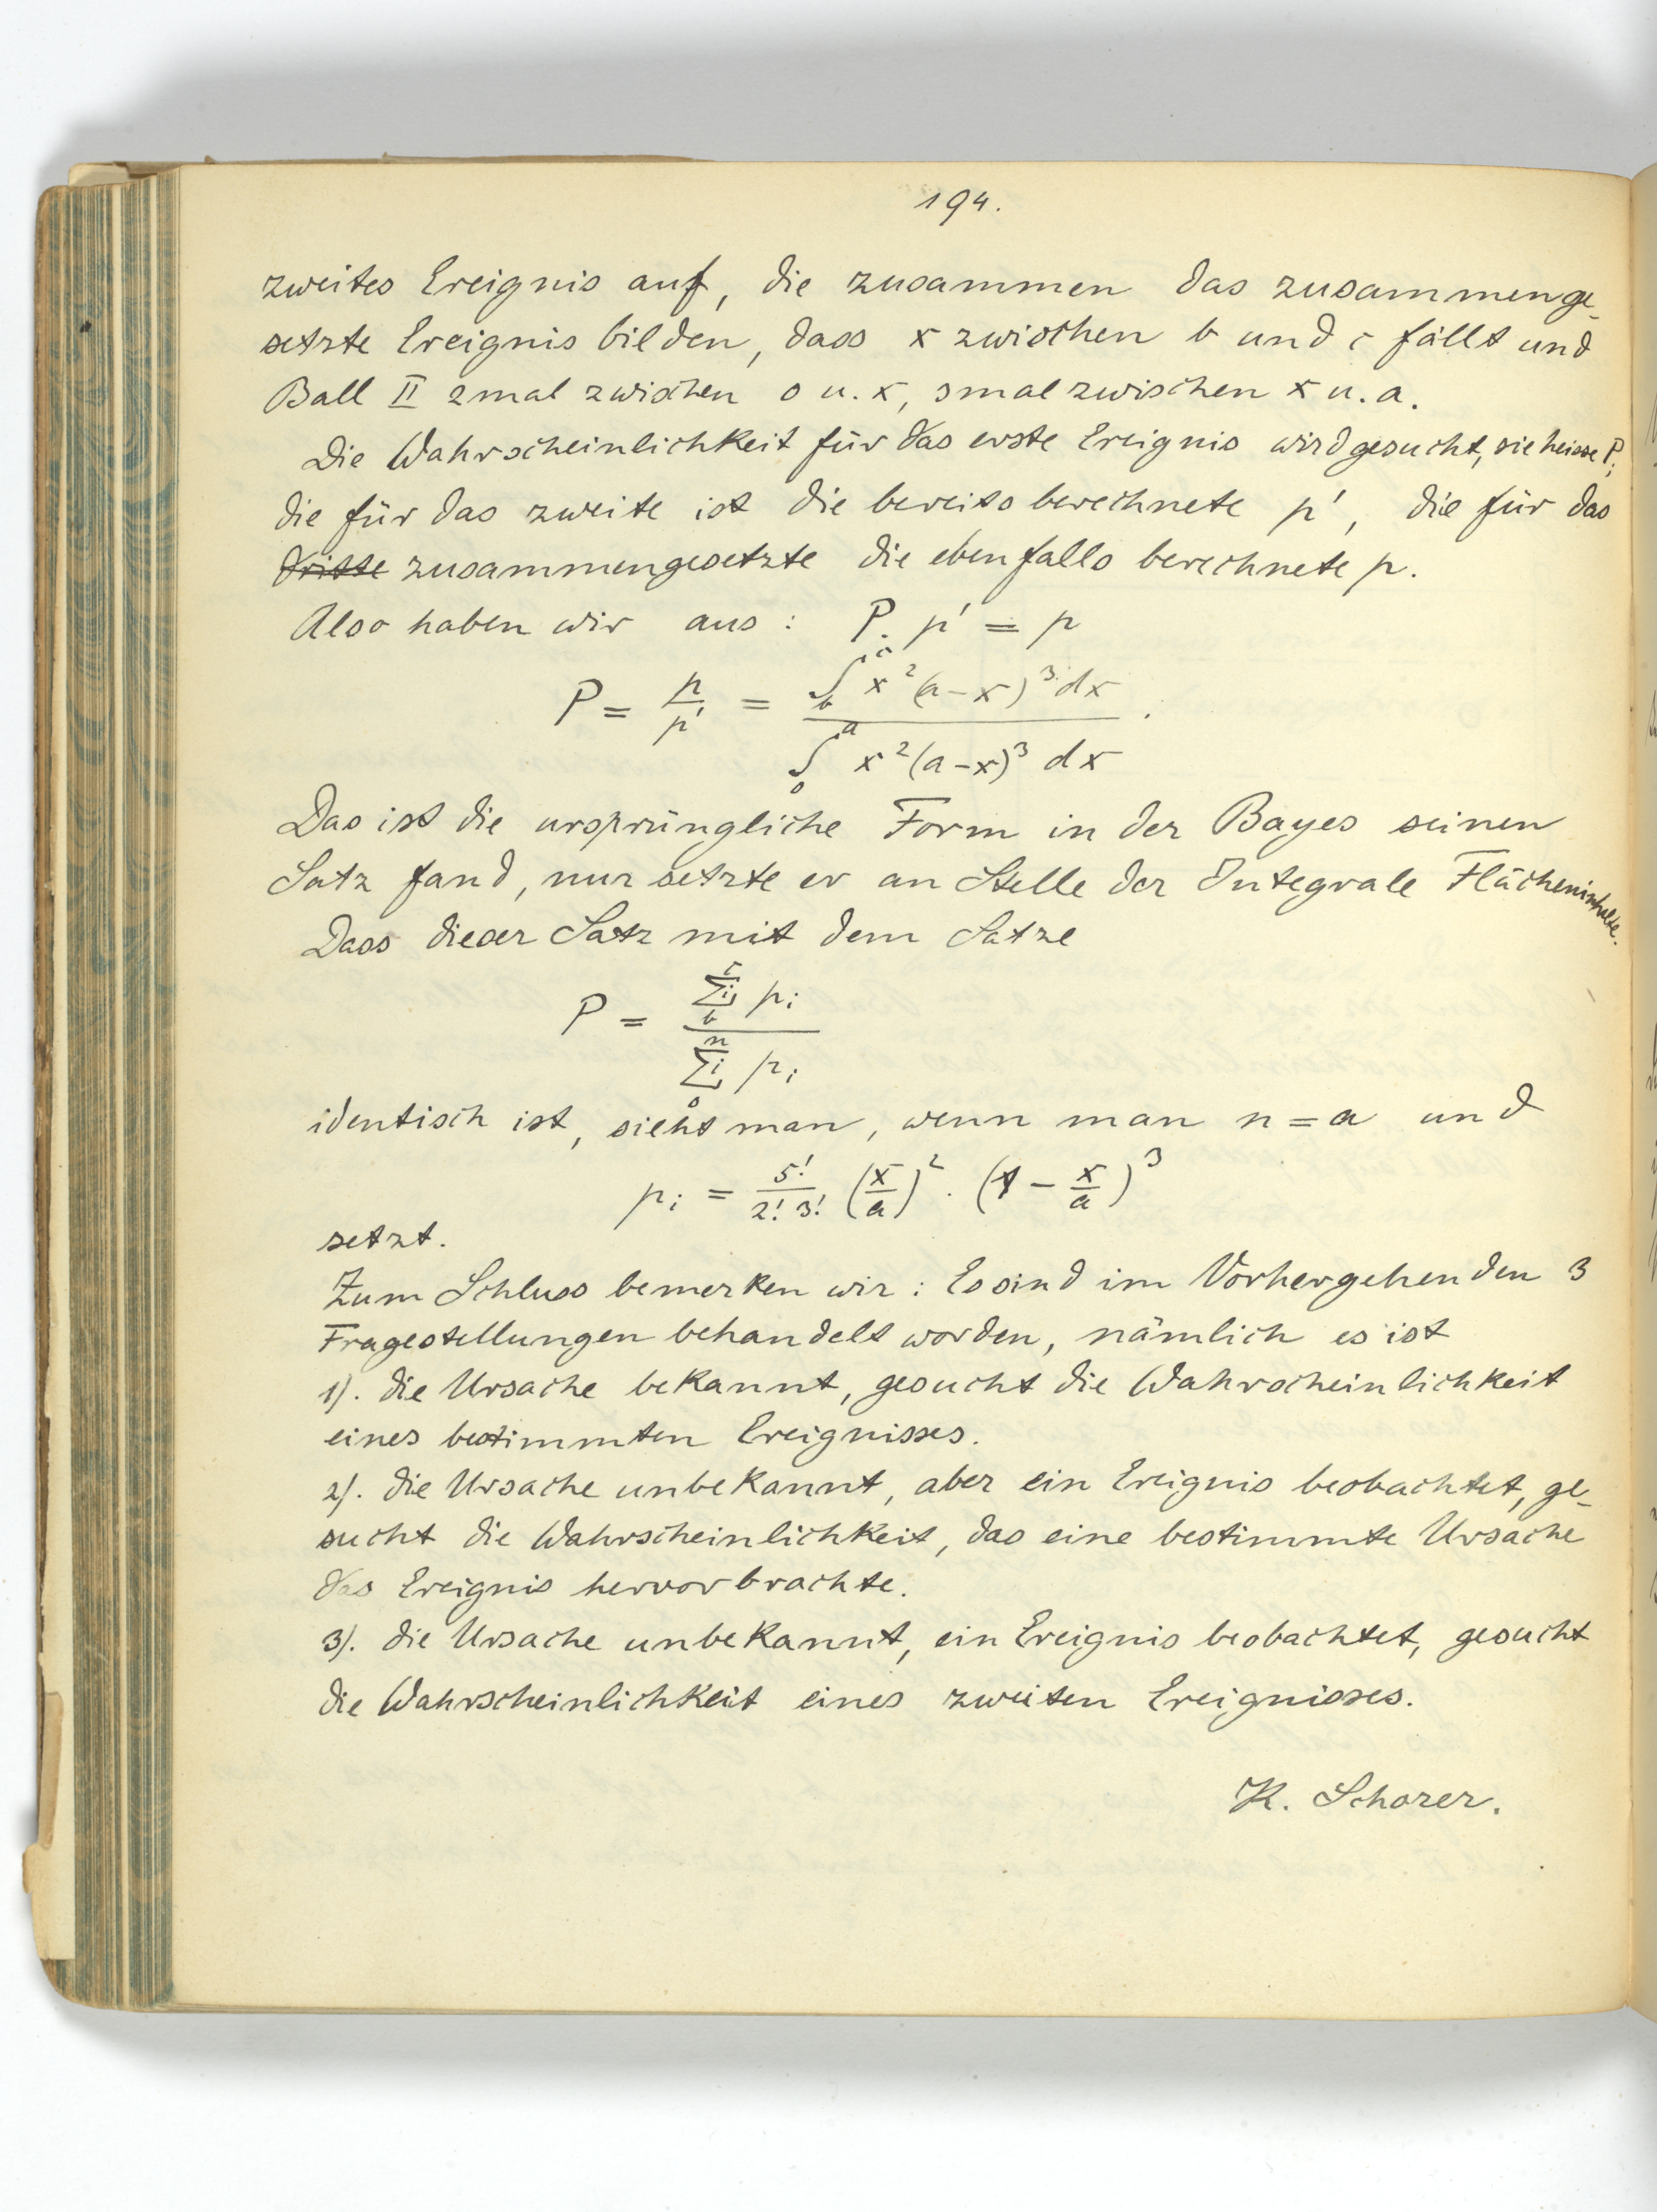 194.
zweites Ereignis auf, die zusammen das zusammenge-
setzte Ereignis bilden, dass x zwischen b und c fällt und
Ball II 2mal zwischen o u. x, 3mal zwischen x u. a.
Die Wahrscheinlichkeit für das erste Ereignis wird gesucht, sie heisse P;
die für das zweite ist die bereits berechnete p', die für das
dritte zusammengesetzte die ebenfalls berechnete p.
Also haben wir aus : P. p' = p
P = p/p' = ∫_b^c x²(a-x)³ dx / ∫_0^a x²(a-x)³ dx .
Das ist die ursprüngliche Form in der Bayes seinen
Satz fand, nur setzte er an Stelle der Integrale Flächeninhalte.
Dass dieser Satz mit dem Satze
P = Σi_b^c p_i / Σi_0^n p_i
identisch ist, sieht man, wenn man n = a und
p_i = 5!/(2! 3!) (x/a)² . (1 - x/a)³
setzt.
Zum Schluss bemerken wir : Es sind im Vorhergehenden 3
Fragestellungen behandelt worden, nämlich es ist
1). die Ursache bekannt, gesucht die Wahrscheinlichkeit
eines bestimmten Ereignisses.
2). die Ursache unbekannt, aber ein Ereignis beobachtet, ge-
sucht die Wahrscheinlichkeit, das eine bestimmte Ursache
das Ereignis hervorbrachte.
3). die Ursache unbekannt, ein Ereignis beobachtet, gesucht
die Wahrscheinlichkeit eines zweiten Ereignisses.
K. Schorer.